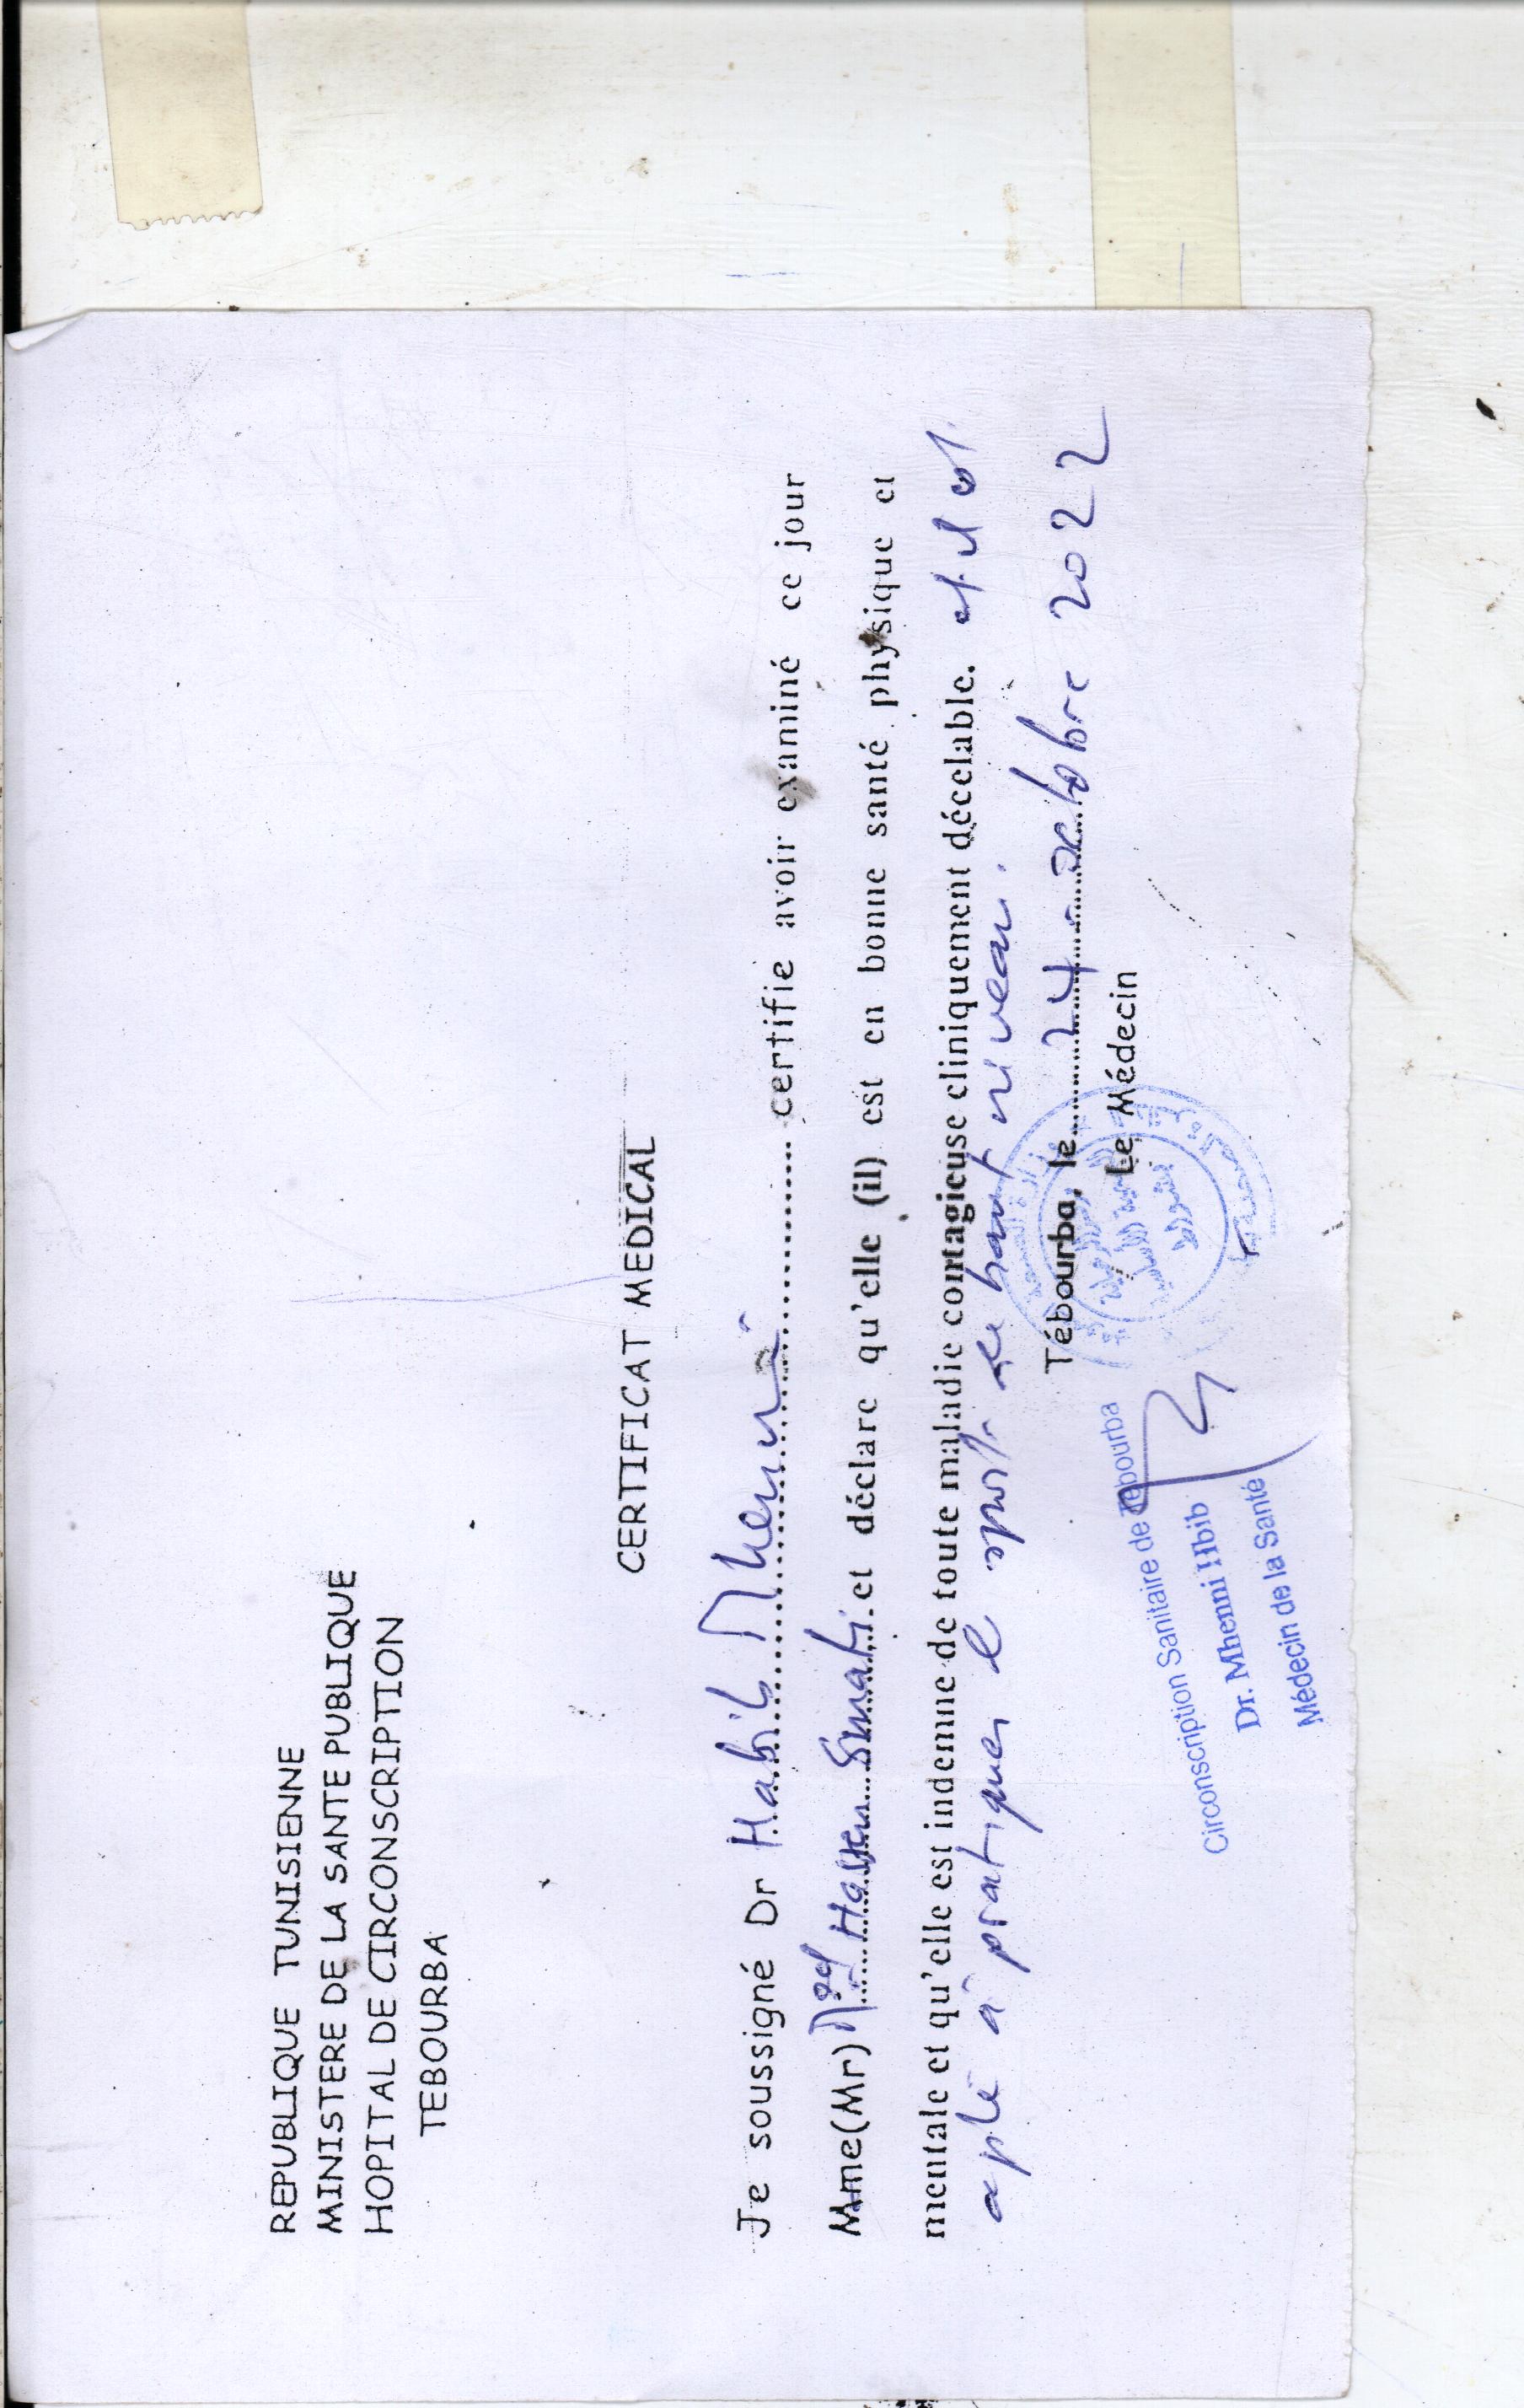 REPUBLIQUE TUNISIENNE
MINISTERE DE LA SANTE PUBLIQUE
HOPITAL DE CIRCONSCRIPTION
TEBOURBA
CERTIFICAT MEDICAL
Je soussigné Dr Habib Mhenni certifie avoir examiné ce jour
Mme(Mr) Med et déclare qu'elle (il) est en bonne santé physique et
mentale et qu'elle est indemne de toute maladie contagieuse cliniquement décelable. et il est
apte à pratiquer le sport de haut niveau.
Tébourba, le 24 octobre 2022
Le Médecin
Circonscription Sanitaire de Tebourba
Dr. Mhenni Hbib
Médecin de la Santé